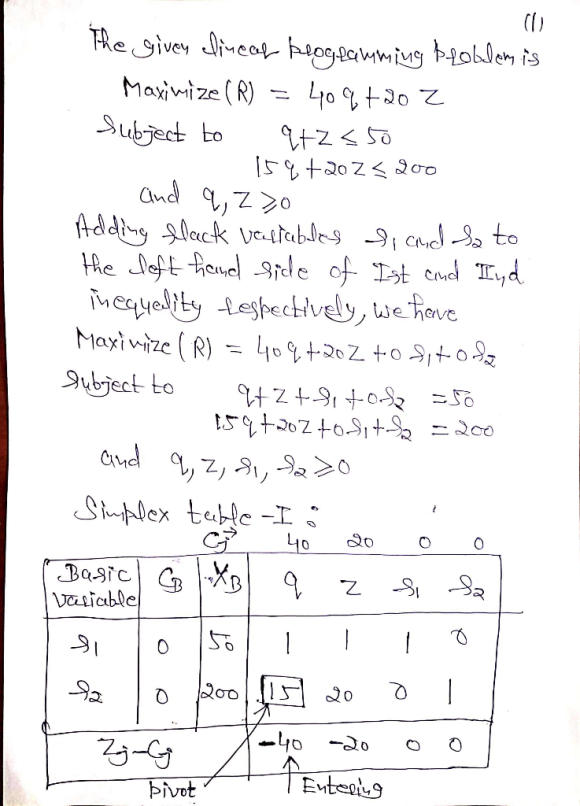 (1)
The given linear programming problem is
Maximize (R) = 40q + 20Z
Subject to q+Z ≤ 50
15q + 20Z ≤ 200
and q, Z ≥ 0
Adding slack variables s₁ and s₂ to
the left hand side of Ist and IInd
inequality respectively, we have
Maximize (R) = 40q + 20Z + 0s₁ + 0s₂
Subject to q + Z + s₁ + 0s₂ = 50
15q + 20Z + 0s₁ + s₂ = 200
and q, Z, s₁, s₂ ≥ 0
Simplex table -I :
Cj→ 40 20 0 0
Basic Variable CB XB q Z s₁ s₂
s₁ 0 50 1 1 1 0
s₂ 0 200 15 20 0 1
Zj-Cj -40 -20 0 0
pivot ↑ Entering